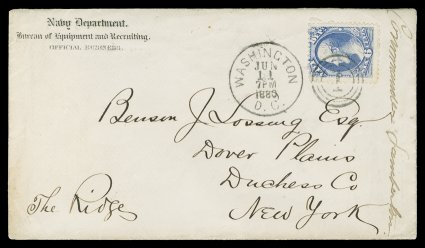 Navy Department.
Bureau of Equipment and Recruiting.
OFFICIAL BUSINESS.
WASHINGTON
JUN
11
7PM
1883
D.C.
Benson J Lossing Esq.
Dover Plains
Duchess Co
New York
The Ridge
Commander